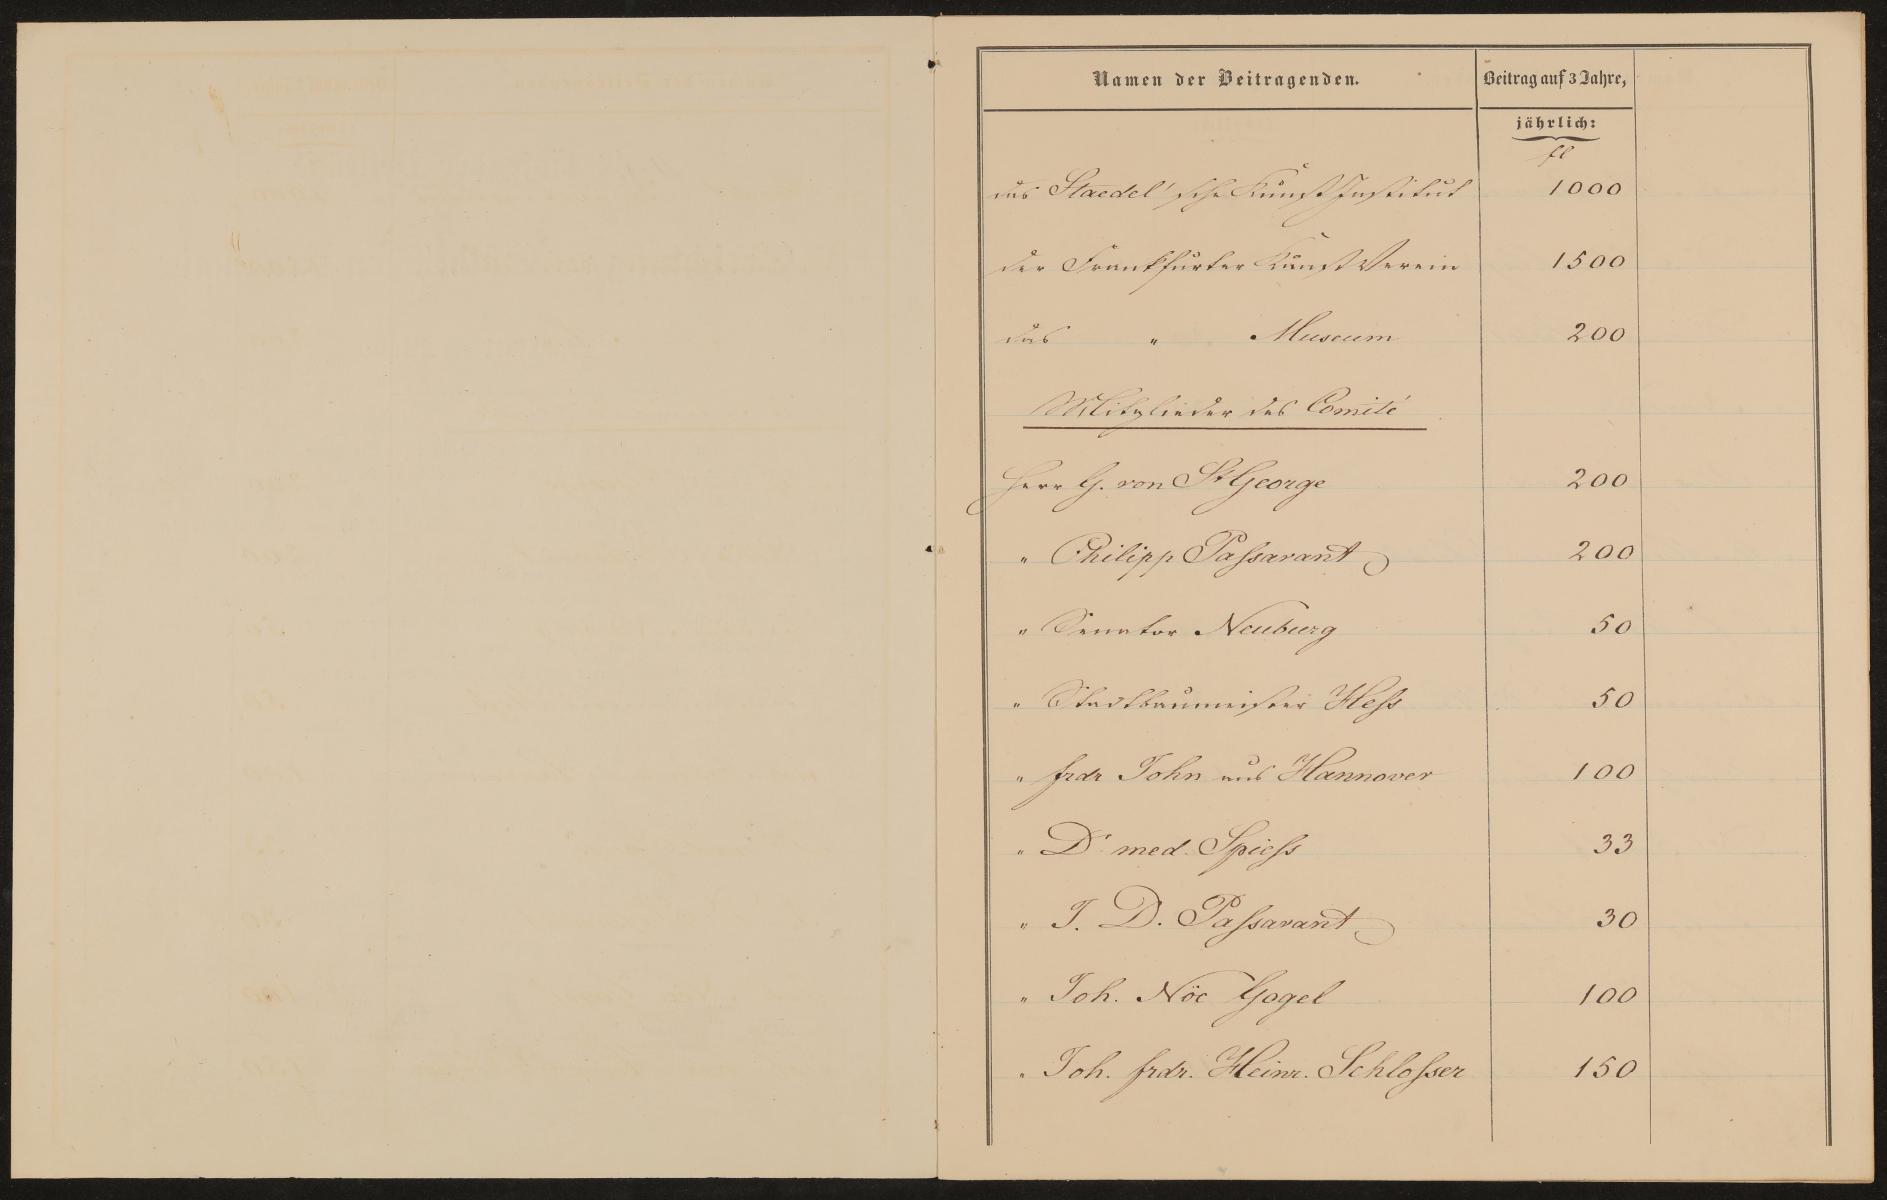 Namen der Beitragenden.
Beitrag auf 3 Jahre,
jährlich:
fl
das Staedel'sche Kunst Institut 1000
der Frankfurter Kunst Verein 1500
das " Museum 200
Mitglieder des Comité
Herr G. von St George 200
" Philipp Passavant 200
" Senator Neuburg 50
" Stadtbaumeister Hess 50
" Frdr John aus Hannover 100
" Dr med. Spiess 33
" J. D. Passavant 30
" Joh. Nöe Gogel 100
" Joh. Frdr. Heinr. Schlosser 150